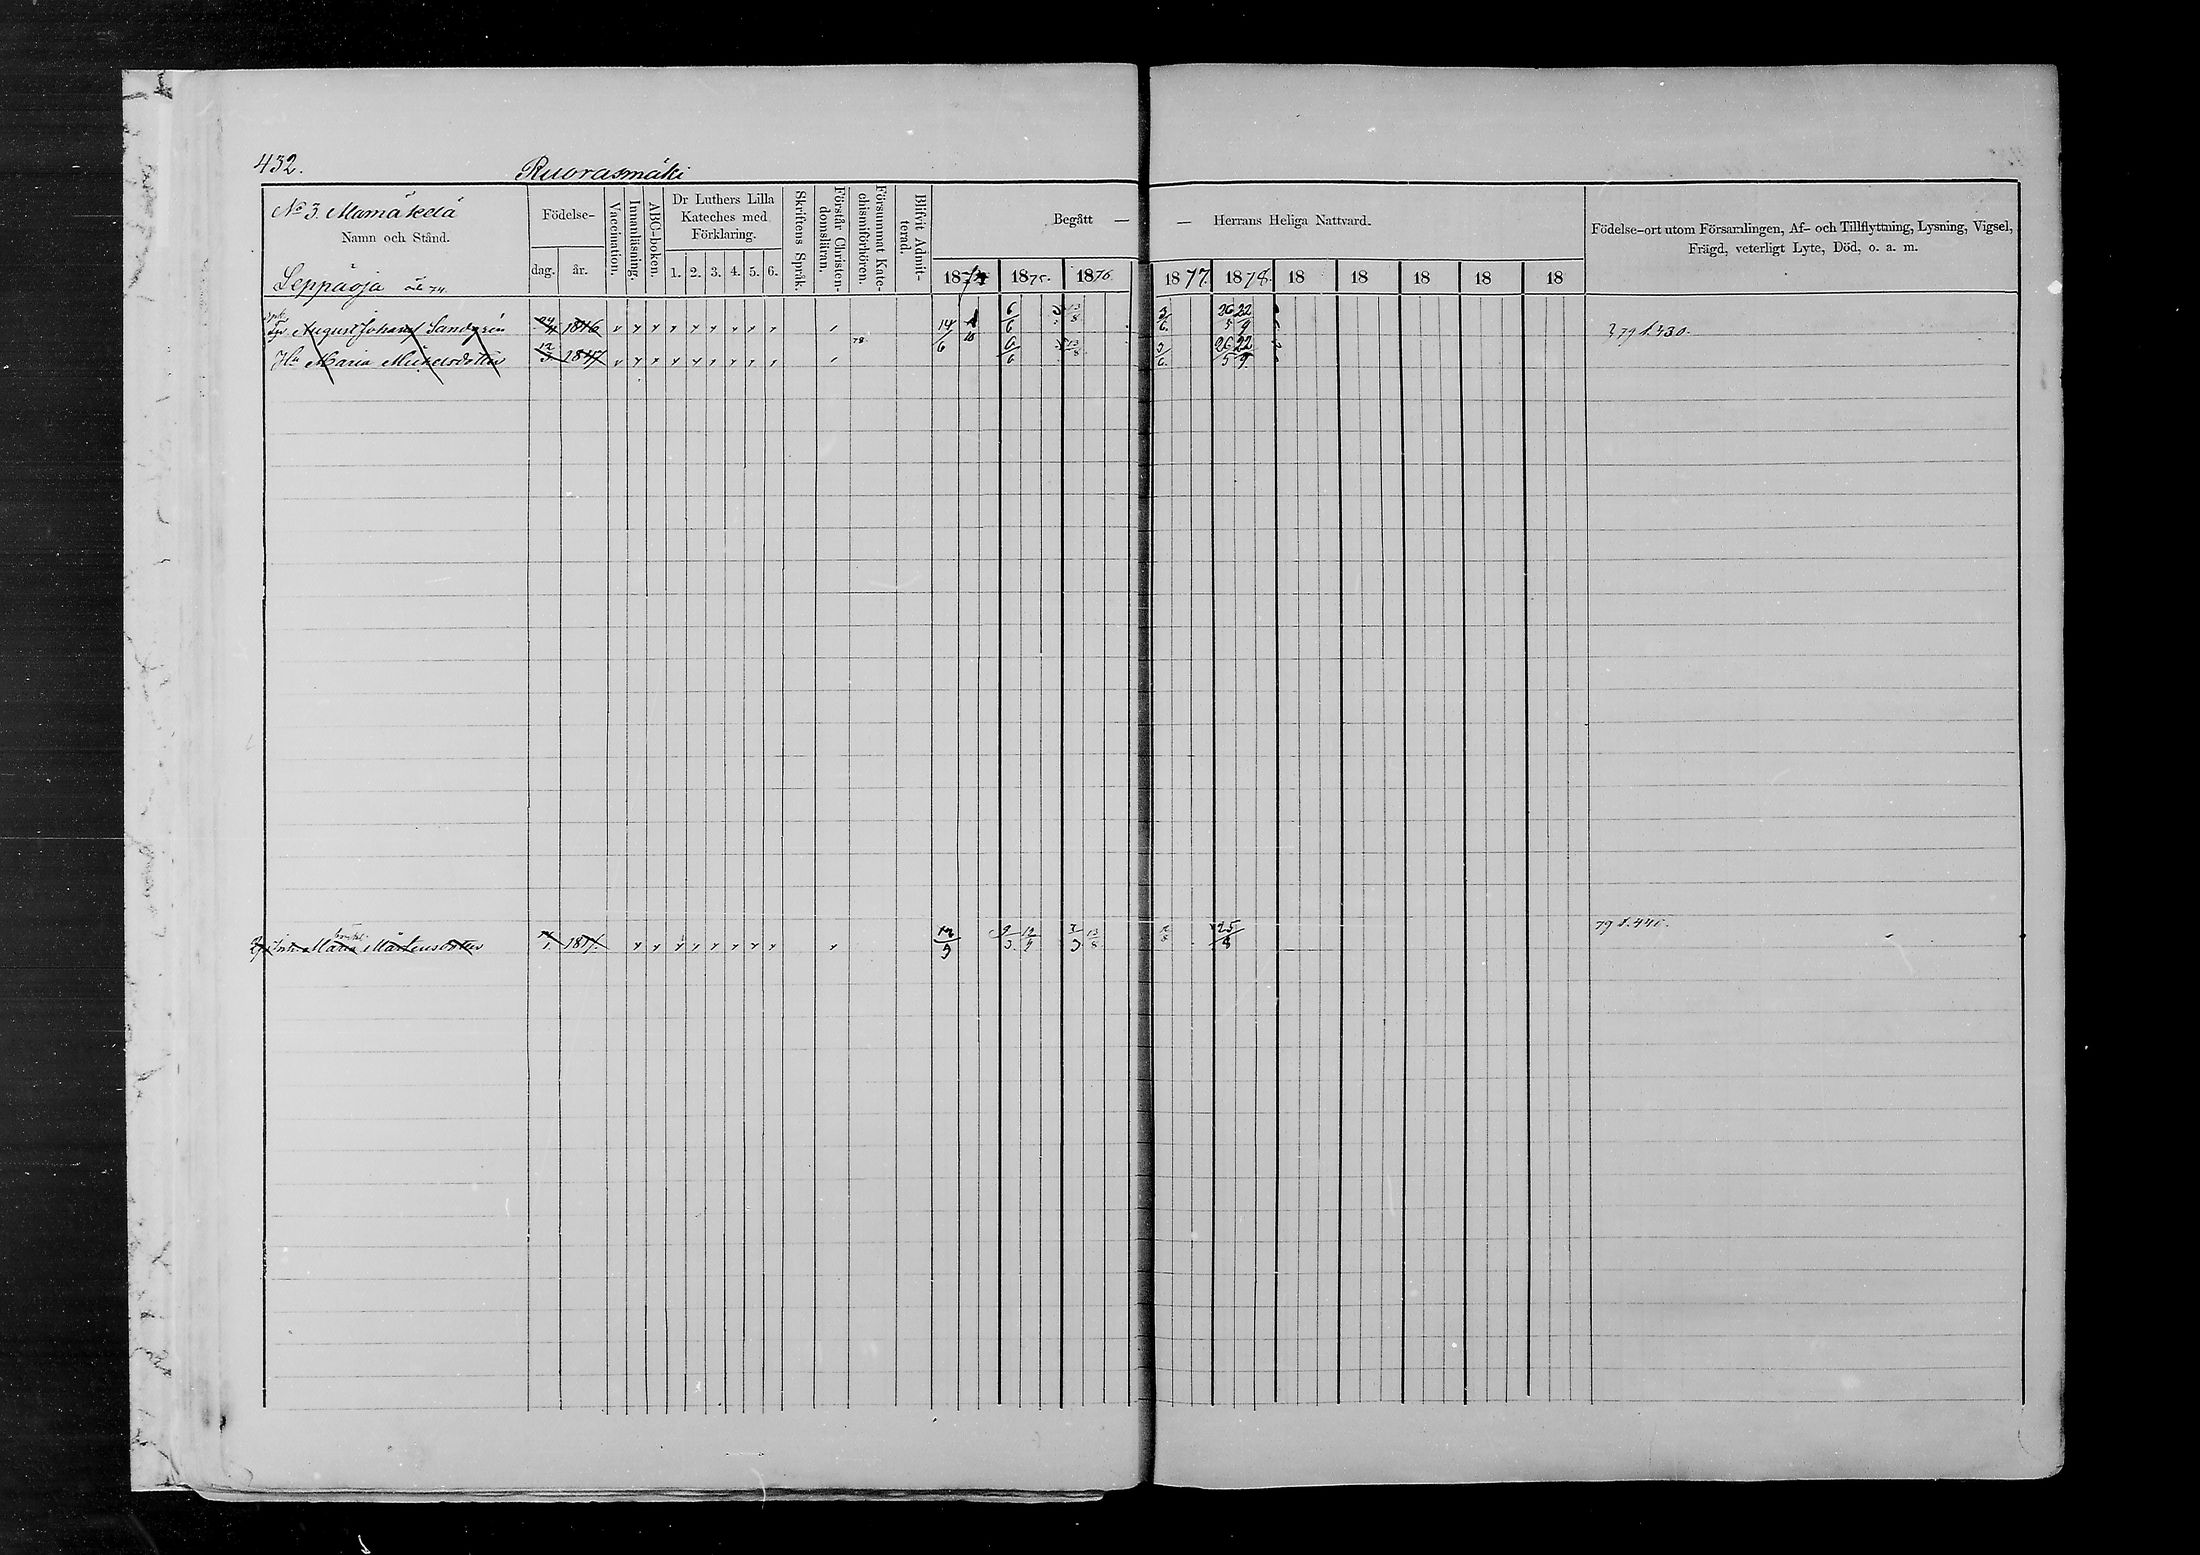 432.
Ruorasmäki
No 3. Mamäkelä
Namn och Stånd.
Leppäoja
Födelse-
dag.
år.
Vaccination.
Innanläsning.
ABC-boken.
Dr Luthers Lilla
Kateches med
Förklaring.
1. 2. 3. 4. 5. 6.
Skriftens Språk.
Förstår Christen-
domsläran.
Försummat Kate-
chismiförhören.
Blifvit Admit-
terad.
Begått —
— Herrans Heliga Nattvard.
1874 1875. 1876. 1877. 1878. 18 18 18 18 18
Födelse-ort utom Församlingen, Af- och Tillflyttning, Lysning, Vigsel,
Frägd, veterligt Lyte, Död, o. a. m.
August Johan Sandgrén 1846 14/6 6/6 13/8 3/6. 26/5 22/9 79 f. 430.
Hu Maria Mickelsdotter 12/3 1847 78. 6/6 13/8 3/6. 26/5 22/9.
Maria Mårtensdotter 12/9 12/9 13/8 25/8 79 f. 440.